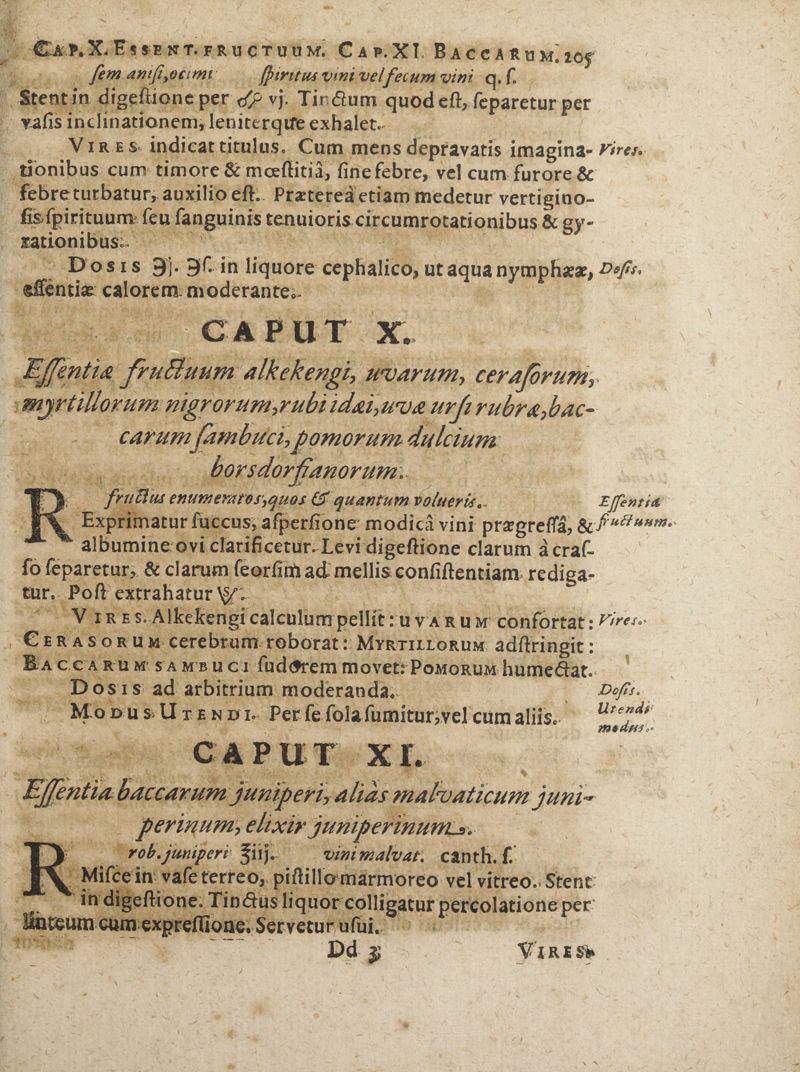 CAP. X. ESSENT. FRUCTUUM. CAP. XI. BACCARUM. 205
ſem aniſi, ocimi ſpiritus vini vel ſecum vini q. ſ.
Stent in digeſtione per vj. Tinctum quod eſt, ſeparetur per
vaſis inclinationem, leniterque exhalet.
VIRES indicat titulus. Cum mens depravatis imagina- Vires.
tionibus cum timore & mœſtitiâ, ſine febre, vel cum furore &
febre turbatur, auxilio eſt. Prætereà etiam medetur vertigino-
ſis ſpirituum ſeu ſanguinis tenuioris circumrotationibus & gy-
rationibus.
DOSIS ℈j. ℈ſ. in liquore cephalico, ut aqua nymphææ, Doſis.
eſſentiæ calorem moderante.
CAPUT X.
Eſſentiæ fructuum alkekengi, uvarum, ceraſorum,
myrtillorum nigrorum, rubi idæi, uvæ urſi rubræ, bac-
carum ſambuci, pomorum dulcium
borsdorfianorum.
℞ fructus enumeratos, quos & quantum volueris. Eſſentia
Exprimatur ſuccus, aſperſione modicâ vini prægreſſâ, & fructuum.
albumine ovi clarificetur. Levi digeſtione clarum à craſ-
ſo ſeparetur, & clarum ſeorſim ad mellis conſiſtentiam rediga-
tur. Poſt extrahatur
VIRES. Alkekengi calculum pellit: UVARUM confortat: Vires.
CERASORUM cerebrum roborat: MYRTILLORUM adſtringit:
BACCARUM SAMBUCI ſudorem movet: POMORUM humectat.
DOSIS ad arbitrium moderanda. Doſis.
MODUS UTENDI. Per ſe ſola ſumitur, vel cum aliis. Utendi
modus.
CAPUT XI.
Eſſentia baccarum juniperi, aliàs malvaticum juni-
perinum, elixir juniperinum.
℞ rob. juniperi ℥iij. vini malvat. canth. ſ.
Miſce in vaſe terreo, piſtillo marmoreo vel vitreo. Stent
in digeſtione. Tinctus liquor colligatur percolatione per
linteum cum expreſſione. Servetur uſui.
Dd 3 VIRES